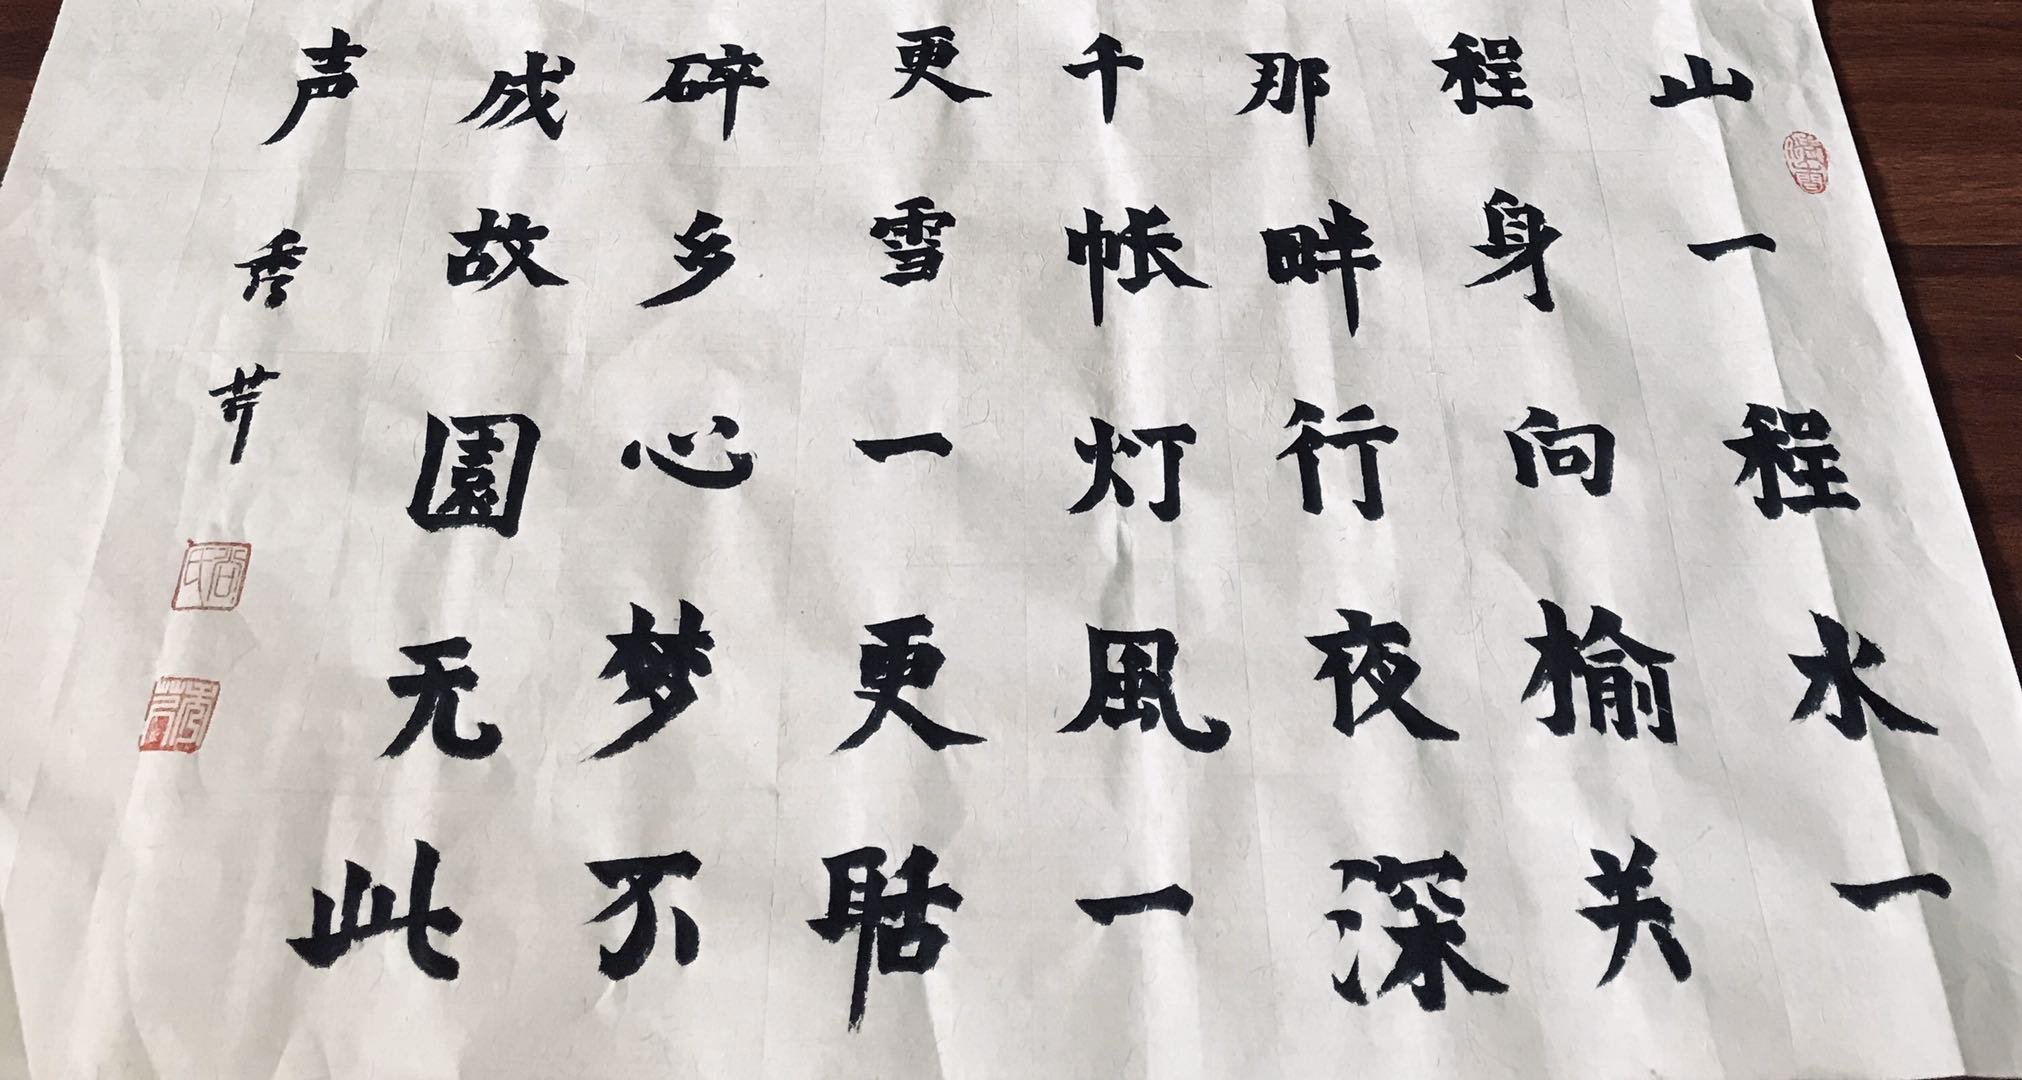 山一程水一
程身向榆关
那畔行夜深
千帐灯風一
更雪一更聒
碎乡心梦不
成故園无此
声
秀芹
尚氏
秀芹